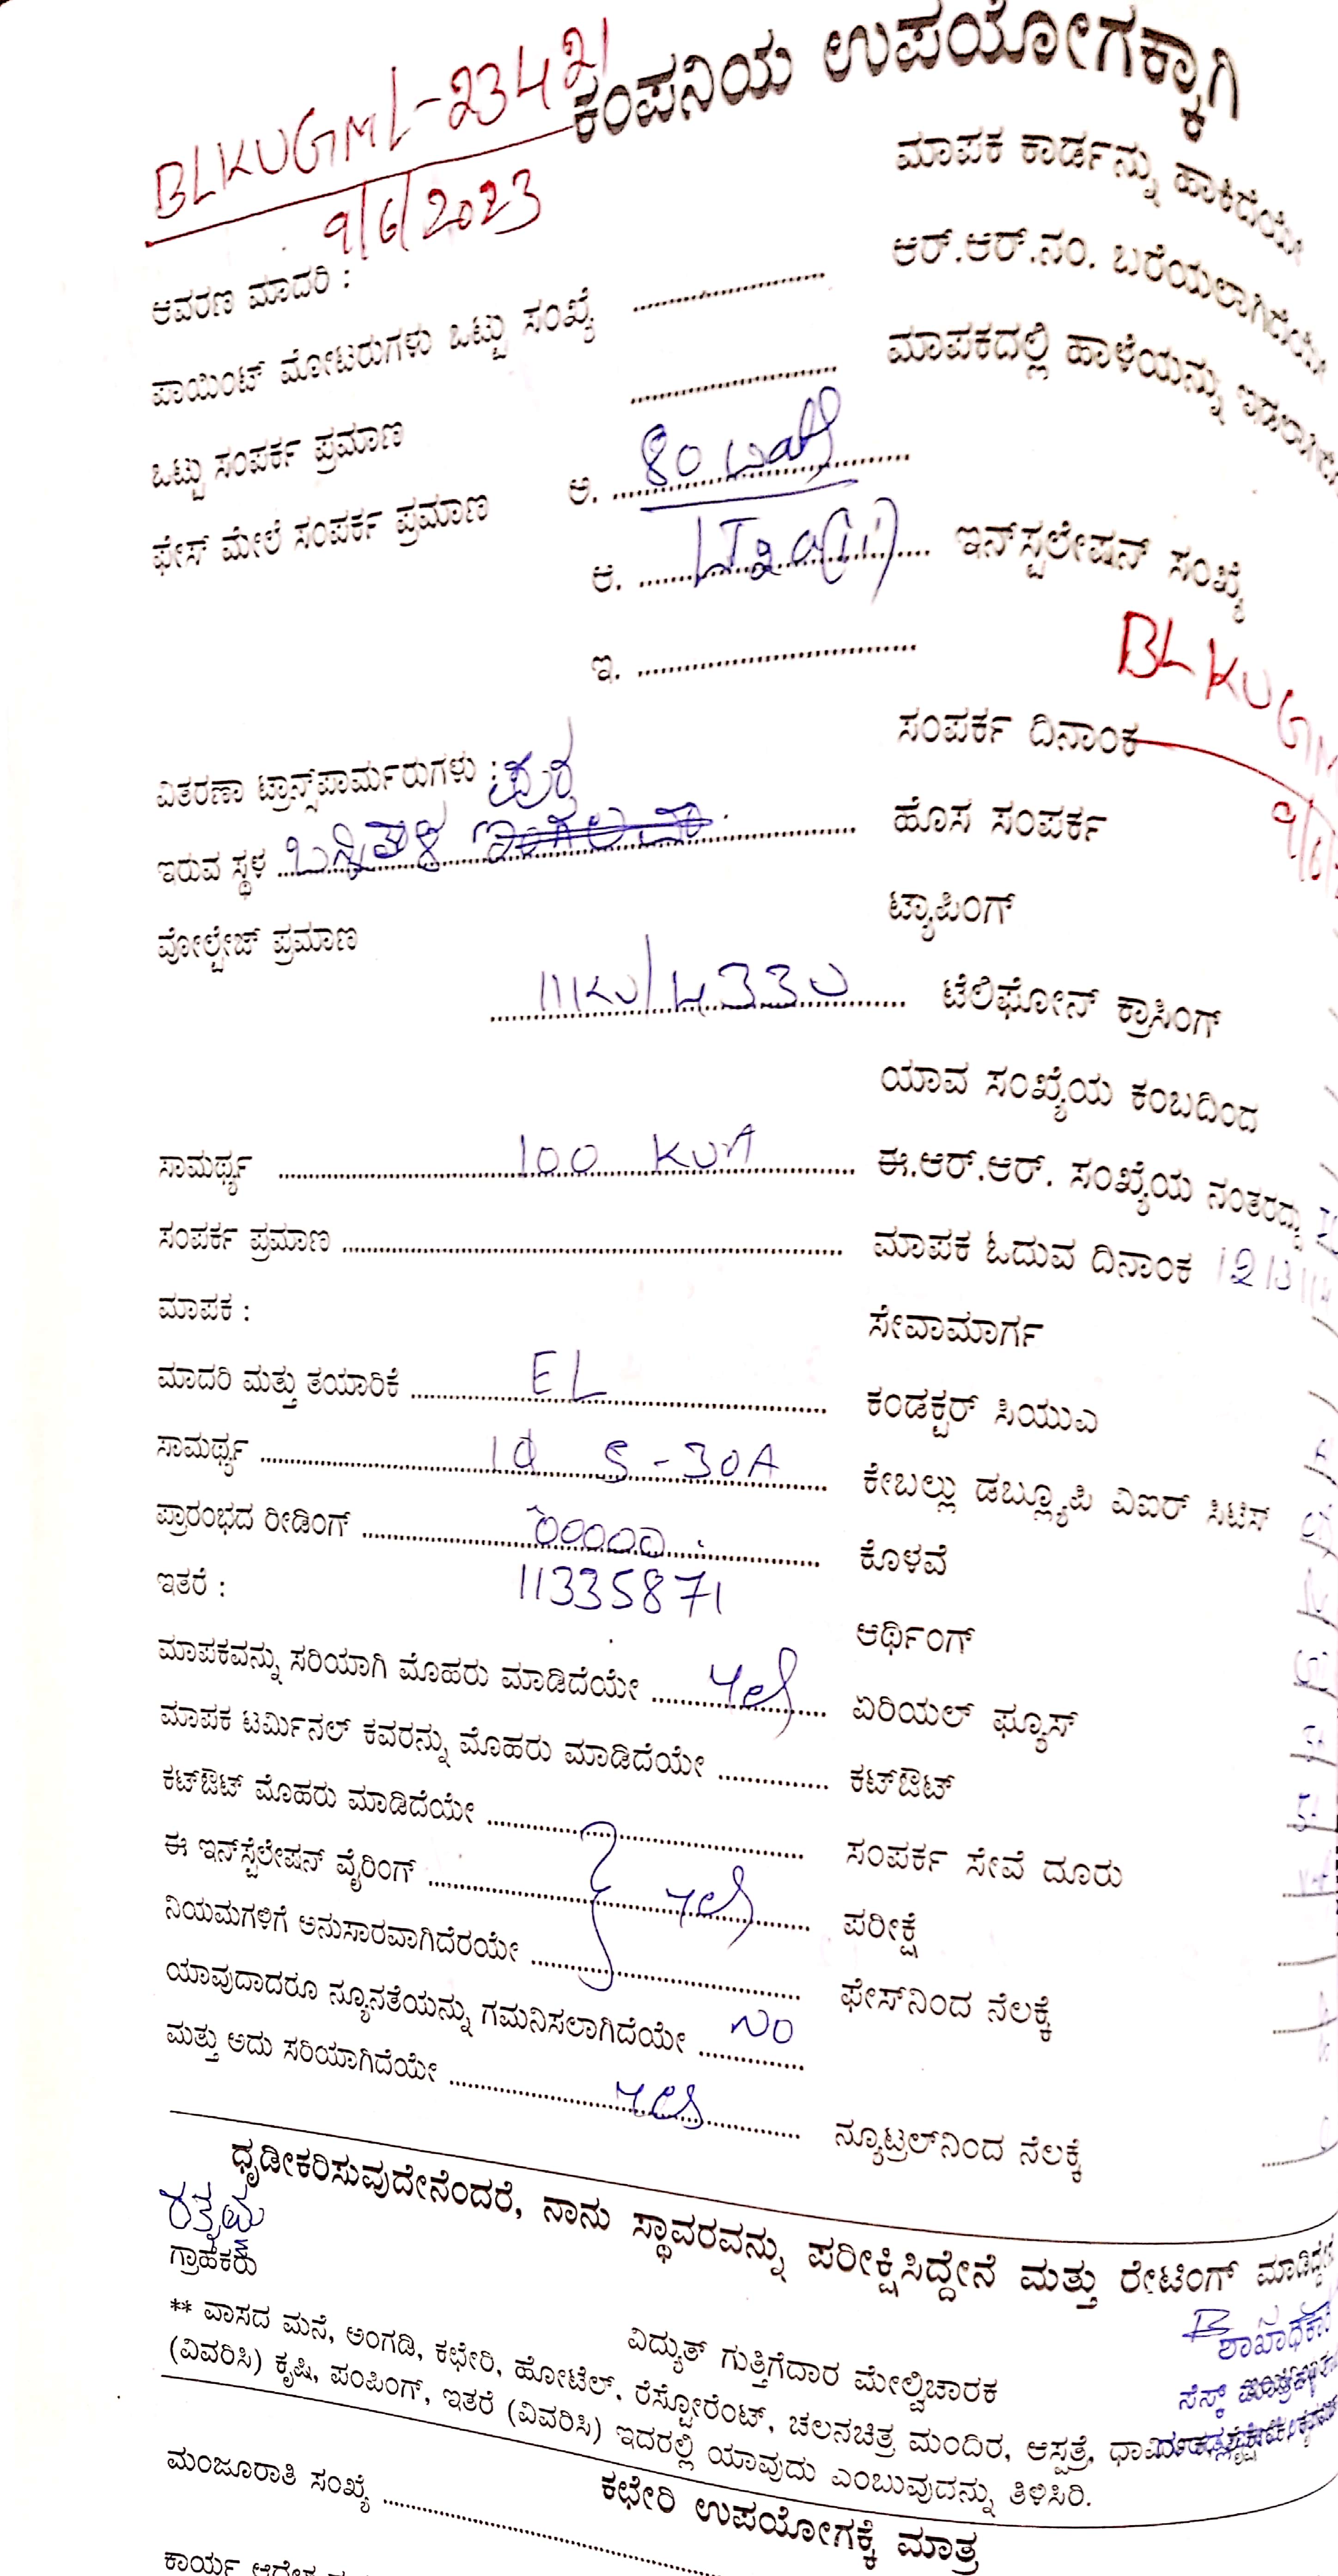 ಕಂಪನಿಯ ಉಪಯೋಗಕ್ಕಾಗಿ
BLKUGML-23421
9/6/2023
ಮಾಪಕ ಕಾರ್ಡನ್ನು ಹಾಕಿದೆಯೇ
ಆವರಣ ಮಾದರಿ :
ಆರ್.ಆರ್.ನಂ. ಬರೆಯಲಾಗಿದೆಯೇ
ಪಾಯಿಂಟ್ ಮೋಟರುಗಳು ಒಟ್ಟು ಸಂಖ್ಯೆ
ಮಾಪಕದಲ್ಲಿ ಹಾಳೆಯನ್ನು
ಒಟ್ಟು ಸಂಪರ್ಕ ಪ್ರಮಾಣ
ಫೇಸ್ ಮೇಲೆ ಸಂಪರ್ಕ ಪ್ರಮಾಣ
ಅ. 80
ಆ. LT2a(ii) ಇನ್‌ಸ್ಟಲೇಷನ್ ಸಂಖ್ಯೆ
ಇ.
BLKUGM
ಸಂಪರ್ಕ ದಿನಾಂಕ
9/6/
ವಿತರಣಾ ಟ್ರಾನ್ಸ್‌ಪಾರ್ಮರುಗಳು :
ಇರುವ ಸ್ಥಳ
ಹೊಸ ಸಂಪರ್ಕ
ವೋಲ್ಟೇಜ್ ಪ್ರಮಾಣ
ಟ್ಯಾಪಿಂಗ್
11KV/433V ಟೆಲಿಫೋನ್ ಕ್ರಾಸಿಂಗ್
ಯಾವ ಸಂಖ್ಯೆಯ ಕಂಬದಿಂದ
ಸಾಮರ್ಥ್ಯ 100 KVA ಈ.ಆರ್.ಆರ್. ಸಂಖ್ಯೆಯ ನಂತರದ್ದು
ಸಂಪರ್ಕ ಪ್ರಮಾಣ ಮಾಪಕ ಓದುವ ದಿನಾಂಕ
ಮಾಪಕ : ಸೇವಾಮಾರ್ಗ
ಮಾದರಿ ಮತ್ತು ತಯಾರಿಕೆ EL ಕಂಡಕ್ಟರ್ ಸಿಯುಎ
ಸಾಮರ್ಥ್ಯ 1ф 5-30A ಕೇಬಲ್ಲು ಡಬ್ಲ್ಯೂಪಿ ಎಐರ್ ಸಿಟಿಸ್
ಪ್ರಾರಂಭದ ರೀಡಿಂಗ್ 00000 ಕೊಳವೆ
ಇತರೆ : 11335871 ಆರ್ಥಿಂಗ್
ಮಾಪಕವನ್ನು ಸರಿಯಾಗಿ ಮೊಹರು ಮಾಡಿದೆಯೇ yes ಏರಿಯಲ್ ಫ್ಯೂಸ್
ಮಾಪಕ ಟರ್ಮಿನಲ್ ಕವರನ್ನು ಮೊಹರು ಮಾಡಿದೆಯೇ ಕಟ್‌ಔಟ್
ಕಟ್‌ಔಟ್ ಮೊಹರು ಮಾಡಿದೆಯೇ ಸಂಪರ್ಕ ಸೇವೆ ದೂರು
ಈ ಇನ್‌ಸ್ಟೆಲೇಷನ್ ವೈರಿಂಗ್ yes ಪರೀಕ್ಷೆ
ನಿಯಮಗಳಿಗೆ ಅನುಸಾರವಾಗಿದೆರಯೇ ಫೇಸ್‌ನಿಂದ ನೆಲಕ್ಕೆ
ಯಾವುದಾದರೂ ನ್ಯೂನತೆಯನ್ನು ಗಮನಿಸಲಾಗಿದೆಯೇ No
ಮತ್ತು ಅದು ಸರಿಯಾಗಿದೆಯೇ yes ನ್ಯೂಟ್ರಲ್‌ನಿಂದ ನೆಲಕ್ಕೆ
ಧೃಡೀಕರಿಸುವುದೇನೆಂದರೆ, ನಾನು ಸ್ಥಾವರವನ್ನು ಪರೀಕ್ಷಿಸಿದ್ದೇನೆ ಮತ್ತು ರೇಟಿಂಗ್ ಮಾಡಿದ್ದೇನೆ
ರತ್ನಮ್ಮ
ಗ್ರಾಹಕರು
ವಿದ್ಯುತ್ ಗುತ್ತಿಗೆದಾರ ಮೇಲ್ವಿಚಾರಕ
** ವಾಸದ ಮನೆ, ಅಂಗಡಿ, ಕಛೇರಿ, ಹೋಟೆಲ್, ರೆಸ್ಟೋರೆಂಟ್, ಚಲನಚಿತ್ರ ಮಂದಿರ, ಆಸ್ಪತ್ರೆ,
(ವಿವರಿಸಿ) ಕೃಷಿ, ಪಂಪಿಂಗ್, ಇತರೆ (ವಿವರಿಸಿ) ಇದರಲ್ಲಿ ಯಾವುದು ಎಂಬುವುದನ್ನು ತಿಳಿಸಿರಿ.
ಕಛೇರಿ ಉಪಯೋಗಕ್ಕೆ ಮಾತ್ರ
ಮಂಜೂರಾತಿ ಸಂಖ್ಯೆ
ಕಾರ್ಯ